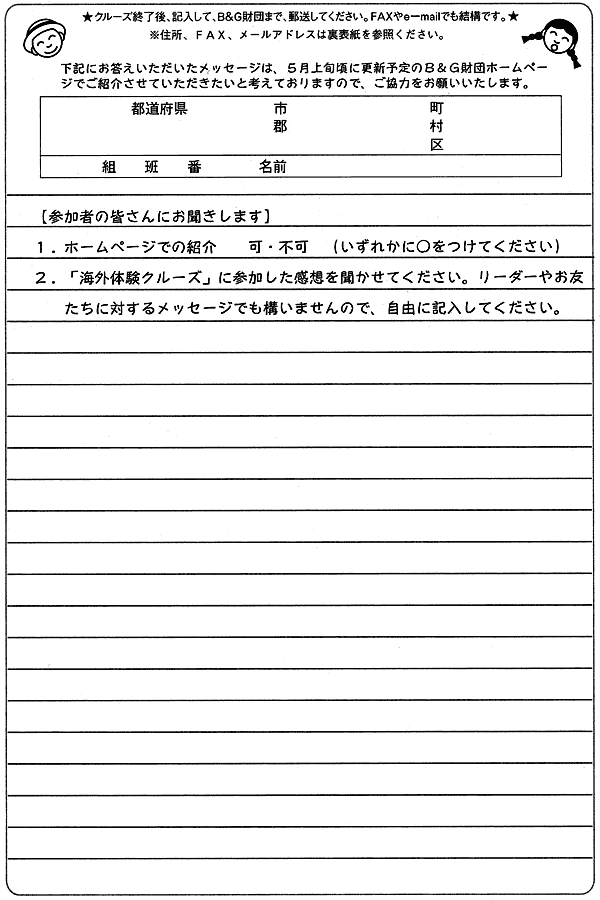 ★クルーズ終了後、記入して、B&G財団まで、郵送してください。FAXやe-mailでも結構です。★
※住所、ＦＡＸ、メールアドレスは裏表紙を参照ください。
下記にお答えいただいたメッセージは、５月上旬頃に更新予定のＢ＆Ｇ財団ホームペー
ジでご紹介させていただきたいと考えておりますので、ご協力をお願いいたします。
都道府県　市　町
郡　村
区
組　班　番　名前
［参加者の皆さんにお聞きします］
１．ホームページでの紹介　可・不可　（いずれかに○をつけてください）
２．「海外体験クルーズ」に参加した感想を聞かせてください。リーダーやお友
たちに対するメッセージでも構いませんので、自由に記入してください。